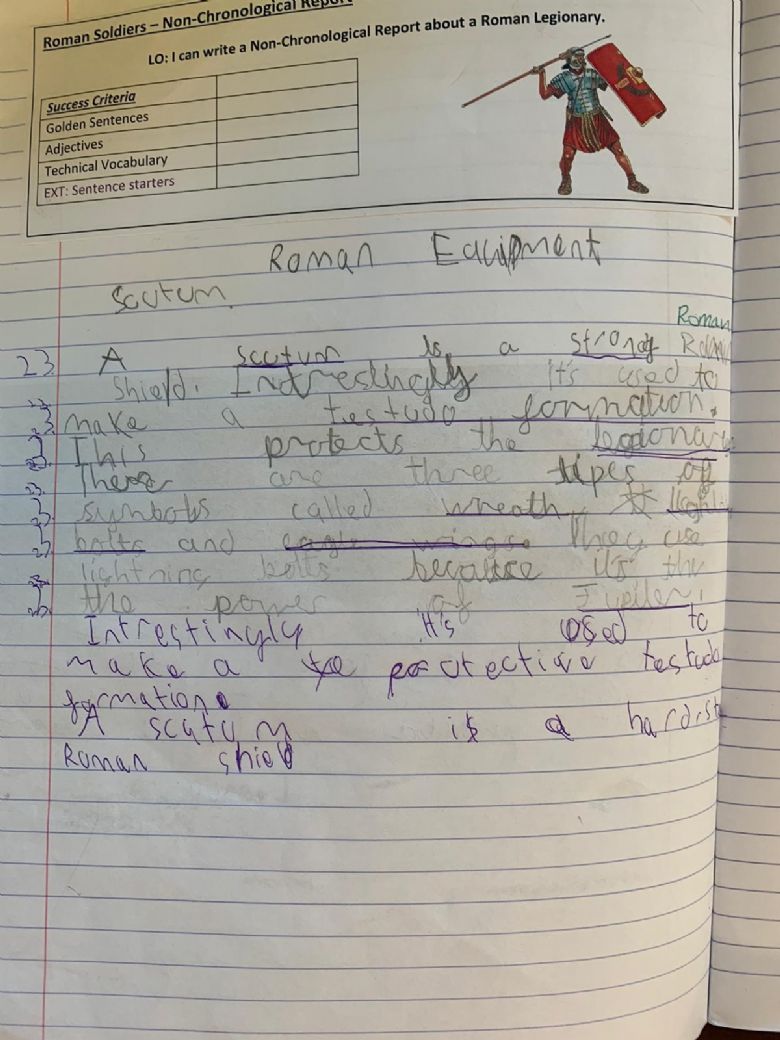 Roman Soldiers – Non-Chronological Report
LO: I can write a Non-Chronological Report about a Roman Legionary.
Success Criteria
Golden Sentences
Adjectives
Technical Vocabulary
EXT: Sentence starters
Roman Equipment
Scutum
Roman
23 A scutum is a strong Roman
Shield. Intrestingly it's used to
make a testudo formation.
This protects the legionary
These are three tipes of
symbols called wreath light
bolts and eagle wings. They use
lightning bolts because it's the
the power of Jupiter.
Intrestingly it's used to
make a protective testudo
formation.
A scutum is a hard
Roman shield